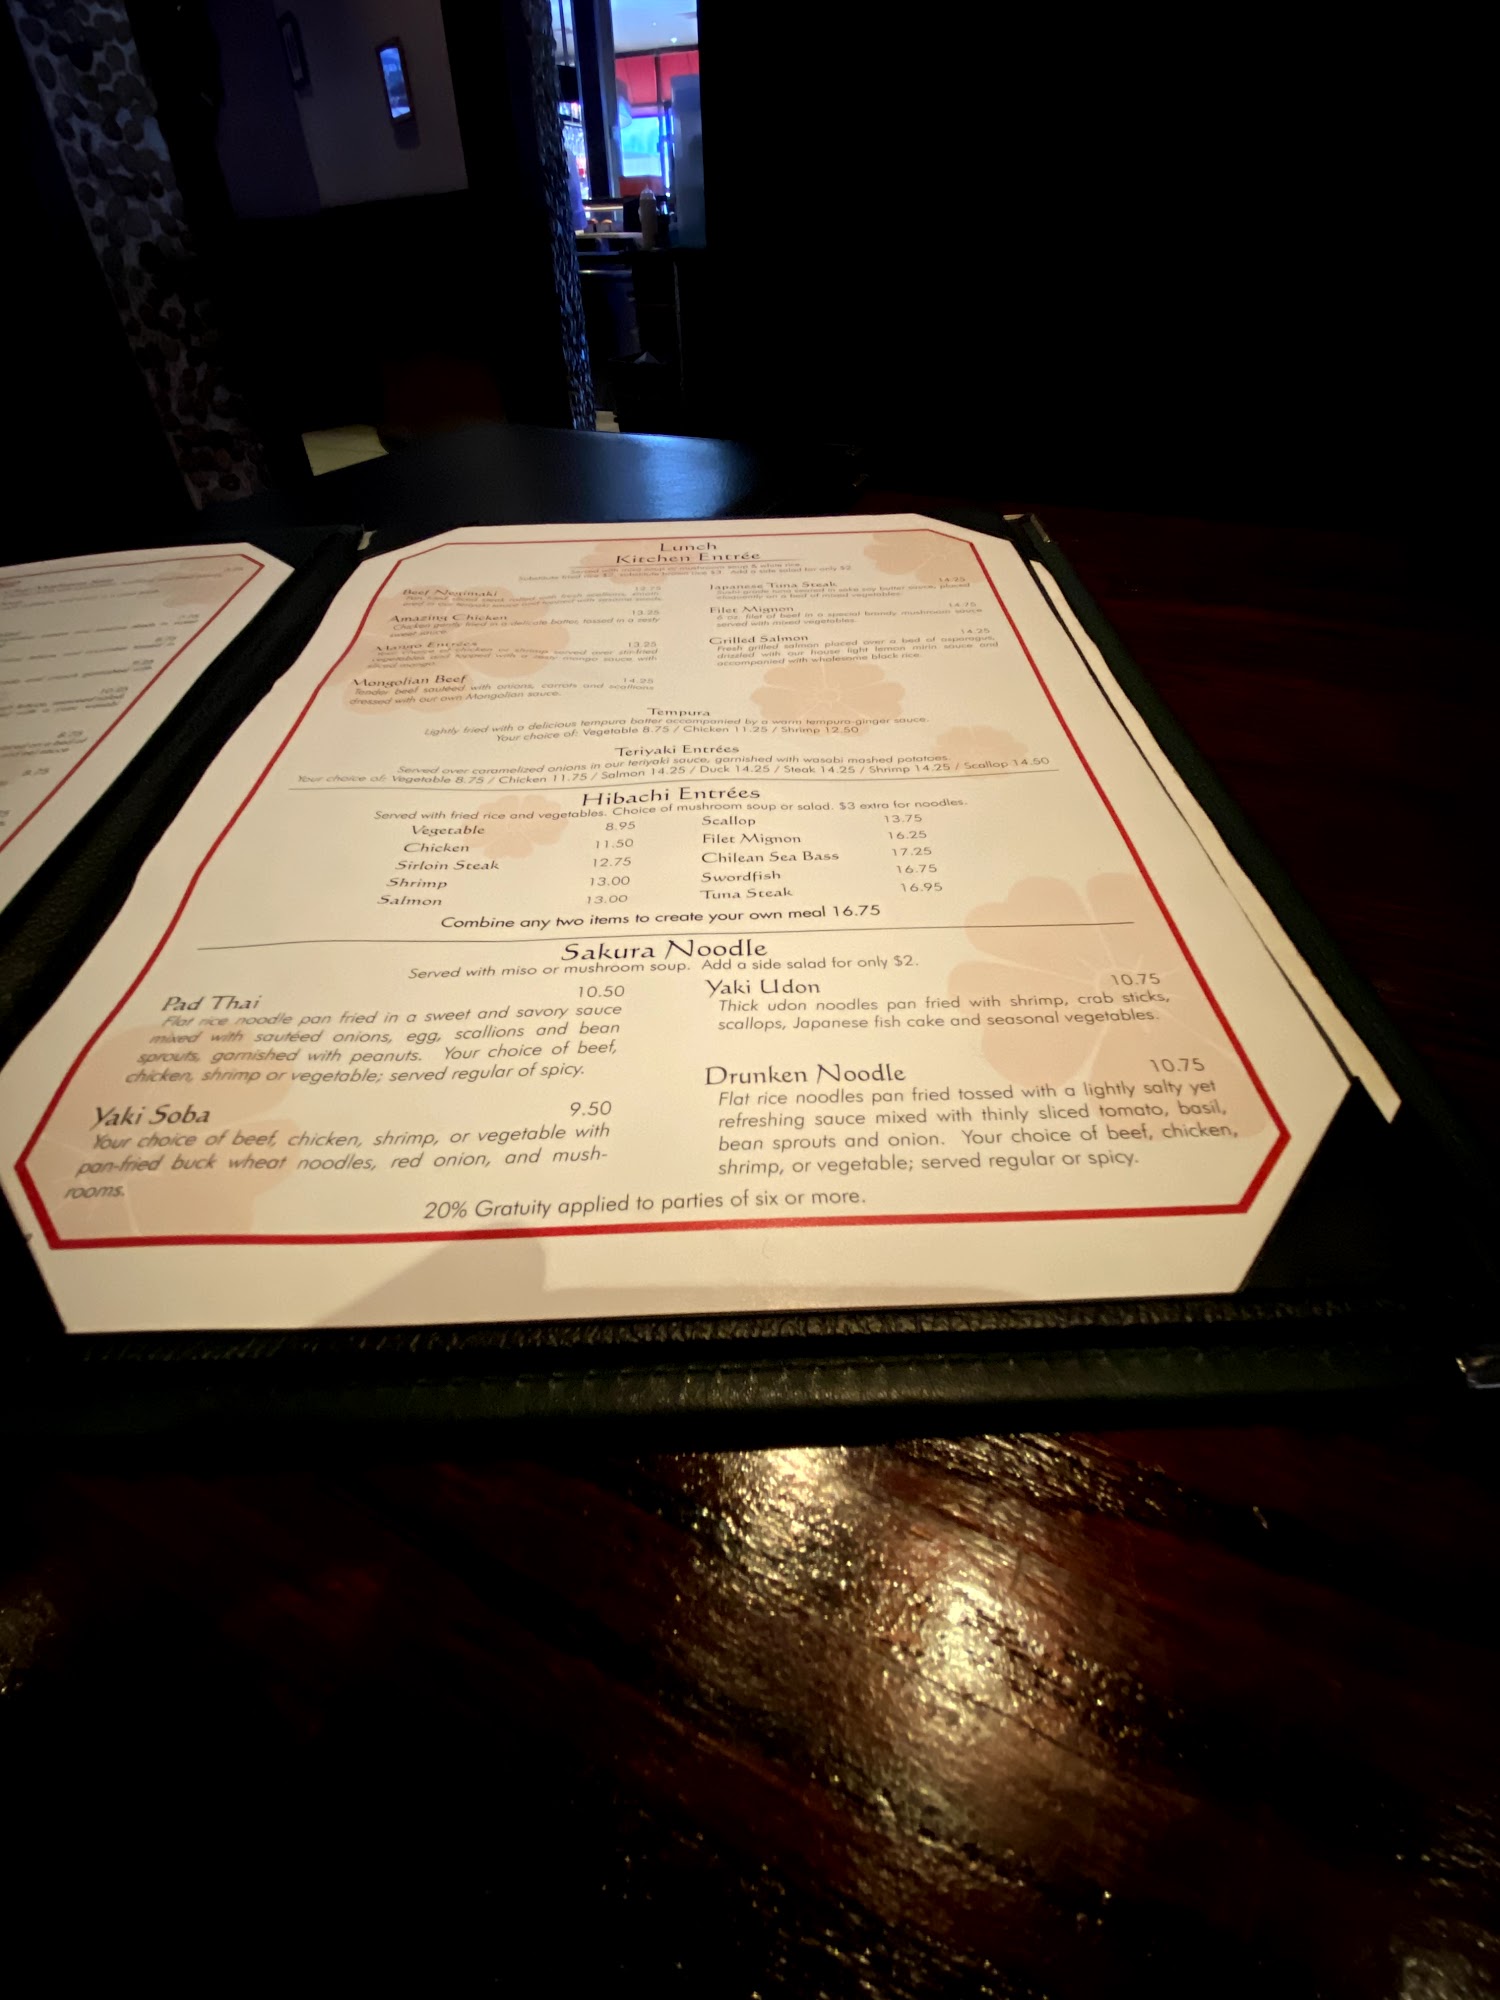 Lunch
Kitchen Entrée
Served with miso soup or mushroom soup & white rice.
Substitute fried rice $2, substitute brown rice $3. Add a side salad for only $2.
Beef Negimaki 12.75
Amazing Chicken 13.25
Chicken gently fried in a delicate batter, tossed in a zesty
sweet sauce.
Mango Entrées 13.25
Your choice of chicken or shrimp served over stir-fried
vegetables and topped with a zesty mango sauce with
sliced mango.
Mongolian Beef 14.25
Tender beef sautéed with onions, carrots and scallions
dressed with our own Mongolian sauce.
Japanese Tuna Steak 14.25
Sushi grade tuna seared in sake soy butter sauce, placed
eloquently on a bed of mixed vegetables.
Filet Mignon 14.75
6 oz. filet of beef in a special brandy mushroom sauce
served with mixed vegetables.
Grilled Salmon 14.25
Fresh grilled salmon placed over a bed of asparagus,
drizzled with our house light lemon mirin sauce and
accompanied with wholesome black rice.
Tempura
Lightly fried with a delicious tempura batter accompanied by a warm tempura-ginger sauce.
Your choice of: Vegetable 8.75 / Chicken 11.25 / Shrimp 12.50
Teriyaki Entrées
Served over caramelized onions in our teriyaki sauce, garnished with wasabi mashed potatoes.
Your choice of: Vegetable 8.75 / Chicken 11.75 / Salmon 14.25 / Duck 14.25 / Steak 14.25 / Shrimp 14.25 / Scallop 14.50
Hibachi Entrées
Served with fried rice and vegetables. Choice of mushroom soup or salad. $3 extra for noodles.
Vegetable 8.95
Chicken 11.50
Sirloin Steak 12.75
Shrimp 13.00
Salmon 13.00
Scallop 13.75
Filet Mignon 16.25
Chilean Sea Bass 17.25
Swordfish 16.75
Tuna Steak 16.95
Combine any two items to create your own meal 16.75
Sakura Noodle
Served with miso or mushroom soup. Add a side salad for only $2.
Pad Thai 10.50
Flat rice noodle pan fried in a sweet and savory sauce
mixed with sautéed onions, egg, scallions and bean
sprouts, garnished with peanuts. Your choice of beef,
chicken, shrimp or vegetable; served regular of spicy.
Yaki Soba 9.50
Your choice of beef, chicken, shrimp, or vegetable with
pan-fried buck wheat noodles, red onion, and mush-
rooms.
Yaki Udon 10.75
Thick udon noodles pan fried with shrimp, crab sticks,
scallops, Japanese fish cake and seasonal vegetables.
Drunken Noodle 10.75
Flat rice noodles pan fried tossed with a lightly salty yet
refreshing sauce mixed with thinly sliced tomato, basil,
bean sprouts and onion. Your choice of beef, chicken,
shrimp, or vegetable; served regular or spicy.
20% Gratuity applied to parties of six or more.